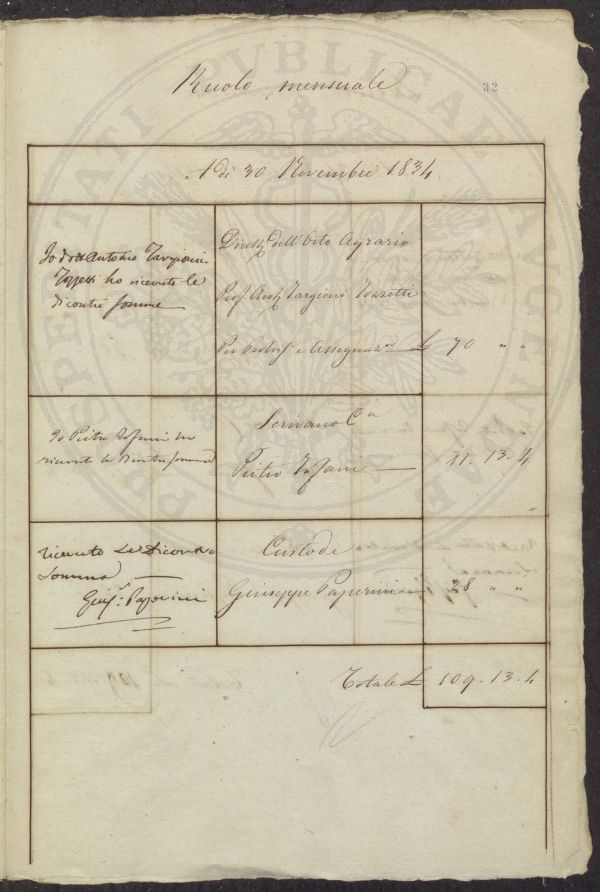 Ruolo mensuale
32
A dì 30 Novembre 1834
Io Dott Antonio Targioni
Tozzetti ho ricevuto le
dicontro somme
Dirett. dell'Orto Agrario
Prof. Ant. Targioni Tozzetti
Per e Assegnaz. £ 70 " "
Io Pietro
ricevuto la dicontro somma
Scrivano Ca
Pietro
11. 13. 4
ricevuto La Dicontro
Somma
Gius. Paperini
Custode
Giuseppe Paperini
28 " "
Totale £ 109. 13. 4